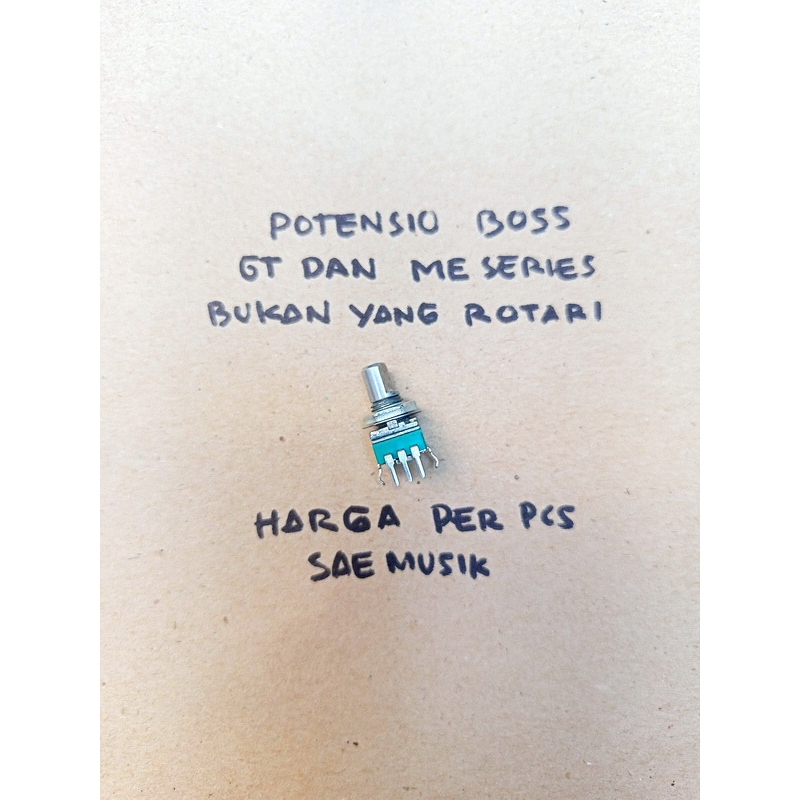 POTENSIO BOSS
GT DAN ME SERIES
BUKAN YANG ROTARI
HARGA PER PCS
SAE MUSIK